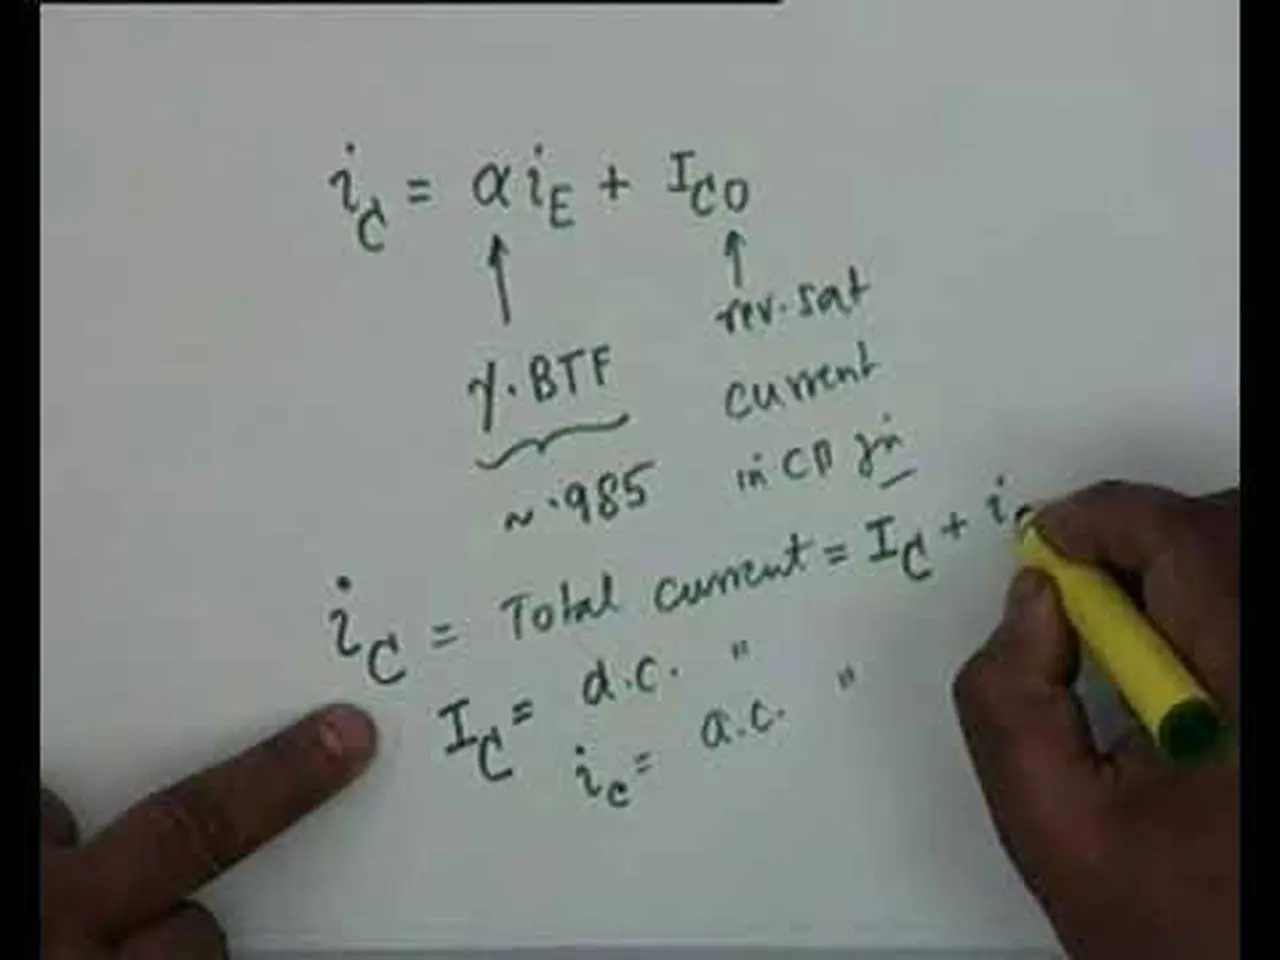 i_C = α i_E + I_CO
↑ ↑
γ·BTF rev·sat
current
~·985 in CB jn
i_C = Total current = I_C + i
I_C = d.c. "
i_c = a.c. "